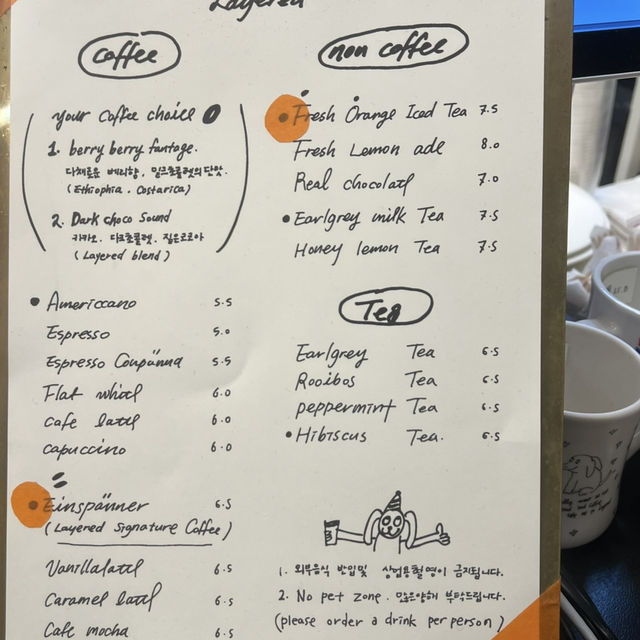 Layered
coffee
your coffee choice
1. berry berry fantage.
다채로운 베리향, 밀크초콜렛의 단맛.
(Ethiophia. Costarica)
2. Dark choco Sound
카카오. 다크초콜렛. 짙은코코아
(Layered blend)
Americcano 5.5
Espresso 5.0
Espresso Coupänna 5.5
Flat whitel 6.0
cafe lattel 6.0
capuccino 6.0
Einspänner 6.5
(Layered Signature Coffee)
Vanillalattel 6.5
Caramel lattel 6.5
Cafe mocha 6.5
non coffee
Fresh Orange Iced Tea 7.5
Fresh Lemon ade 8.0
Real chocolatl 7.0
Earlgrey milk Tea 7.5
Honey lemon Tea 7.5
Tea
Earlgrey Tea 6.5
Rooibos Tea 6.5
peppermint Tea 6.5
Hibiscus Tea. 6.5
1. 외부음식 반입및 상업용촬영이 금지됩니다.
2. No pet zone. 많은양해 부탁드립니다.
(please order a drink per person)